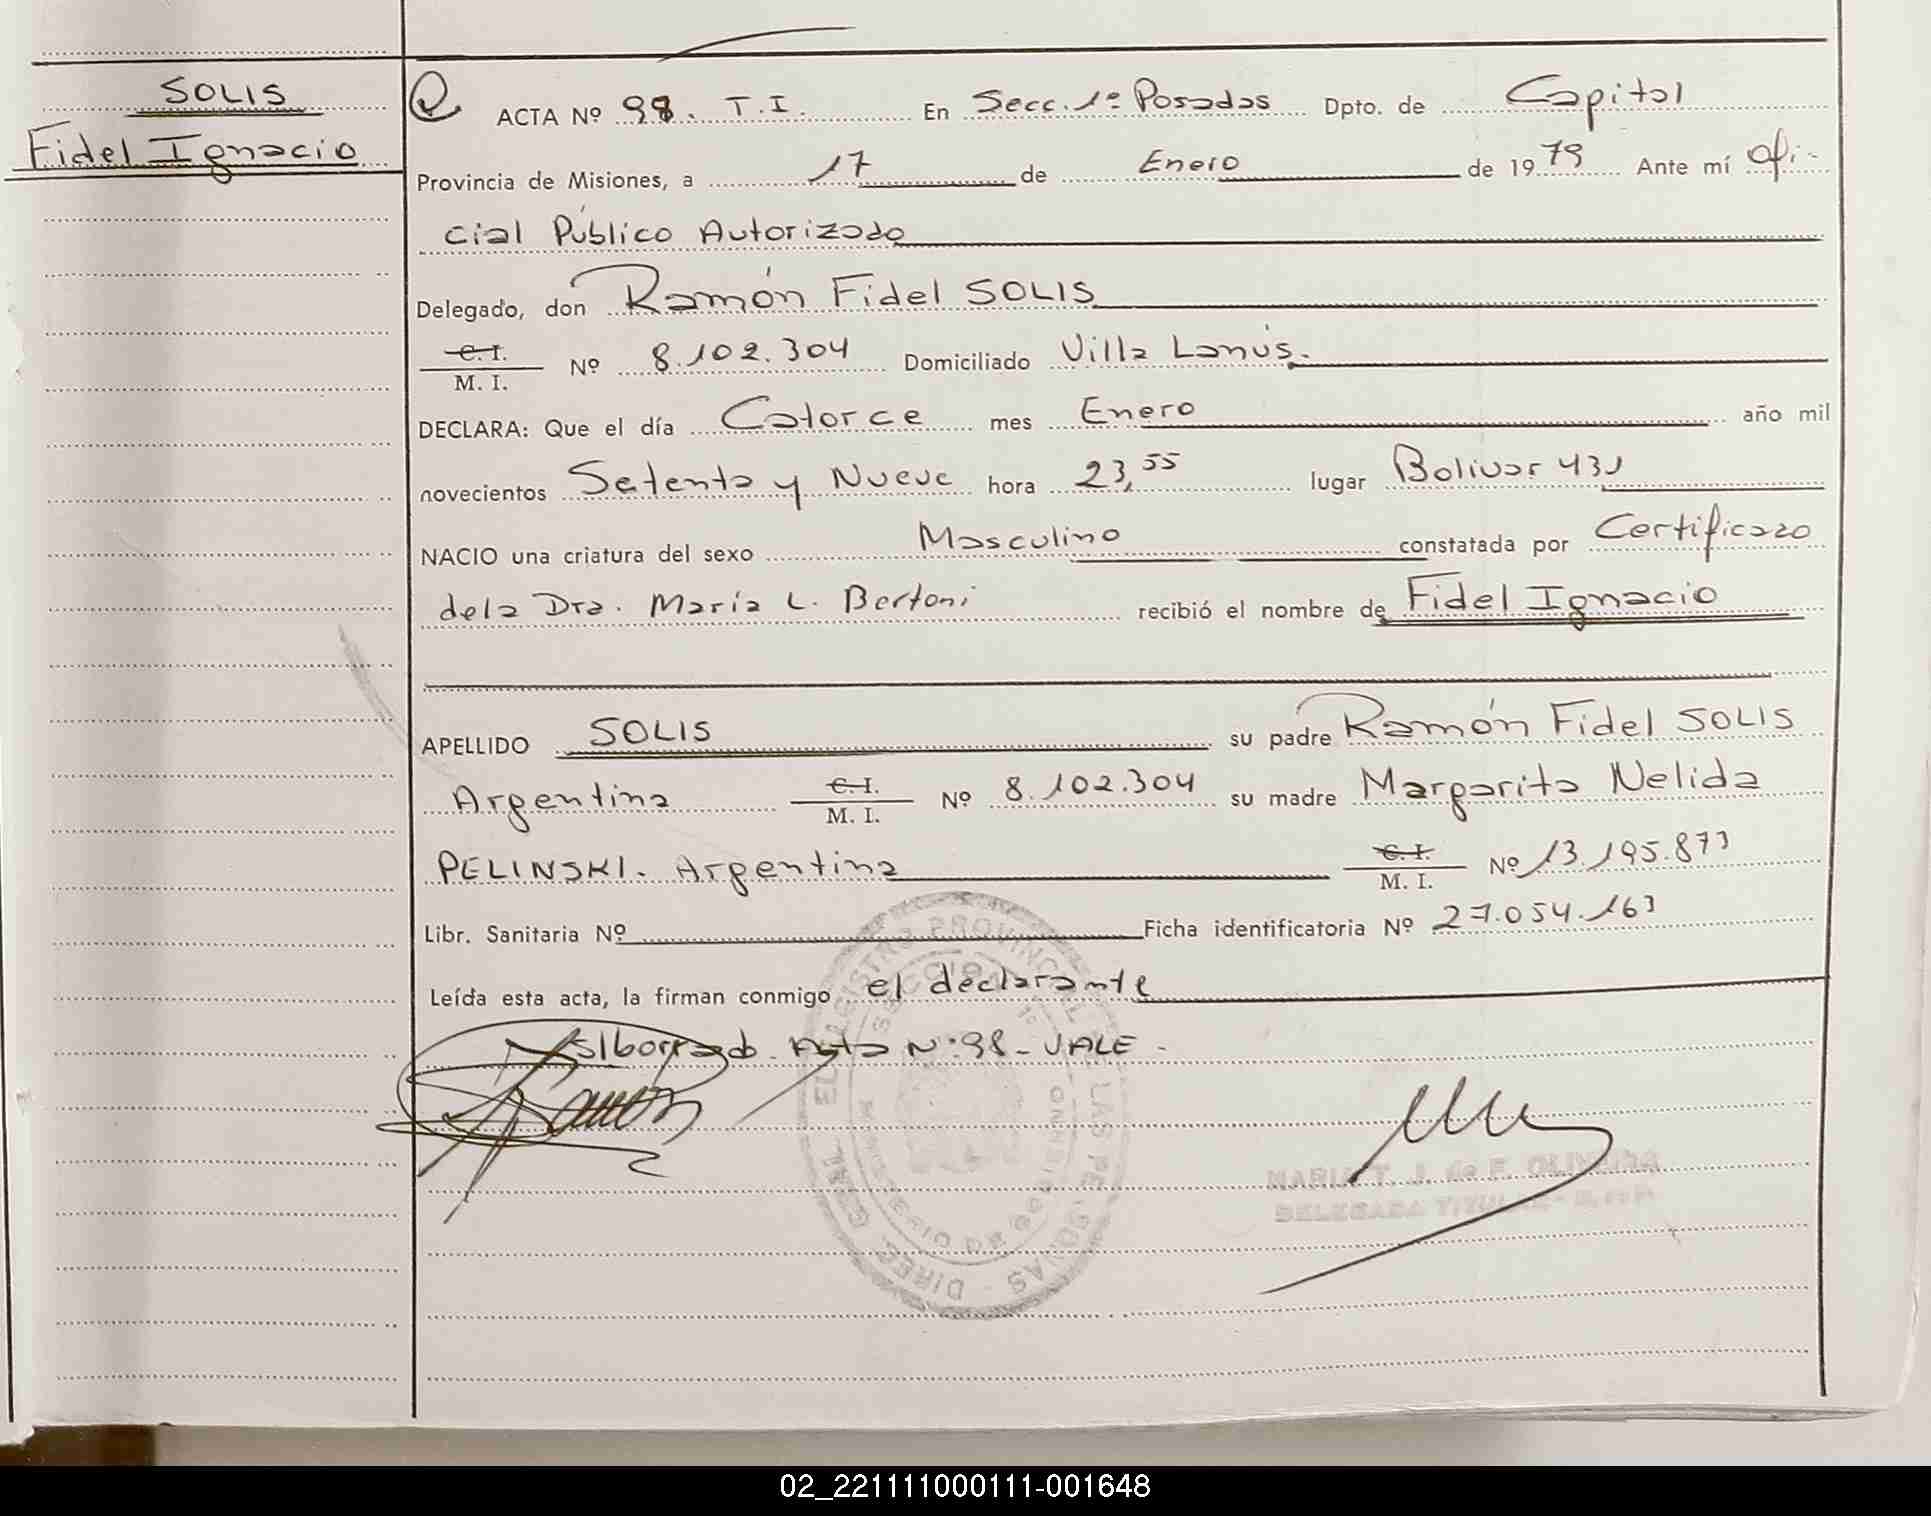 SOLIS
Fidel Ignacio
ACTA Nº 98. T.I. En Secc. 1º Posadas Dpto. de Capital
Provincia de Misiones, a 17 de Enero de 1979 Ante mí ofi-
cial Público Autorizado
Delegado, don Ramón Fidel SOLIS
C. I. / M. I. Nº 8.102.304 Domiciliado Villa Lanús.
DECLARA: Que el día Catorce mes Enero año mil
novecientos Setenta y Nueve hora 23,55 lugar Bolivar 431
NACIO una criatura del sexo Masculino constatada por Certificado
de la Dra. María L. Bertoni recibió el nombre de Fidel Ignacio
APELLIDO SOLIS su padre Ramón Fidel SOLIS
Argentina C. I. / M. I. Nº 8.102.304 su madre Margarita Nelida
PELINSKI. Argentina C. I. / M. I. Nº 13.195.873
Libr. Sanitaria Nº Ficha identificatoria Nº 27.054.163
Leída esta acta, la firman conmigo el declarante
S/borrado. Acta Nº 98 - VALE -
Ramón
DIREC. GRAL. DEL REGISTRO PROVINCIAL DE LAS PERSONAS
SECCION 1º
MINISTERIO DE GOBIERNO
MARIA T. J. de F. OLIVEIRA
DELEGADA TITULAR
02_221111000111-001648